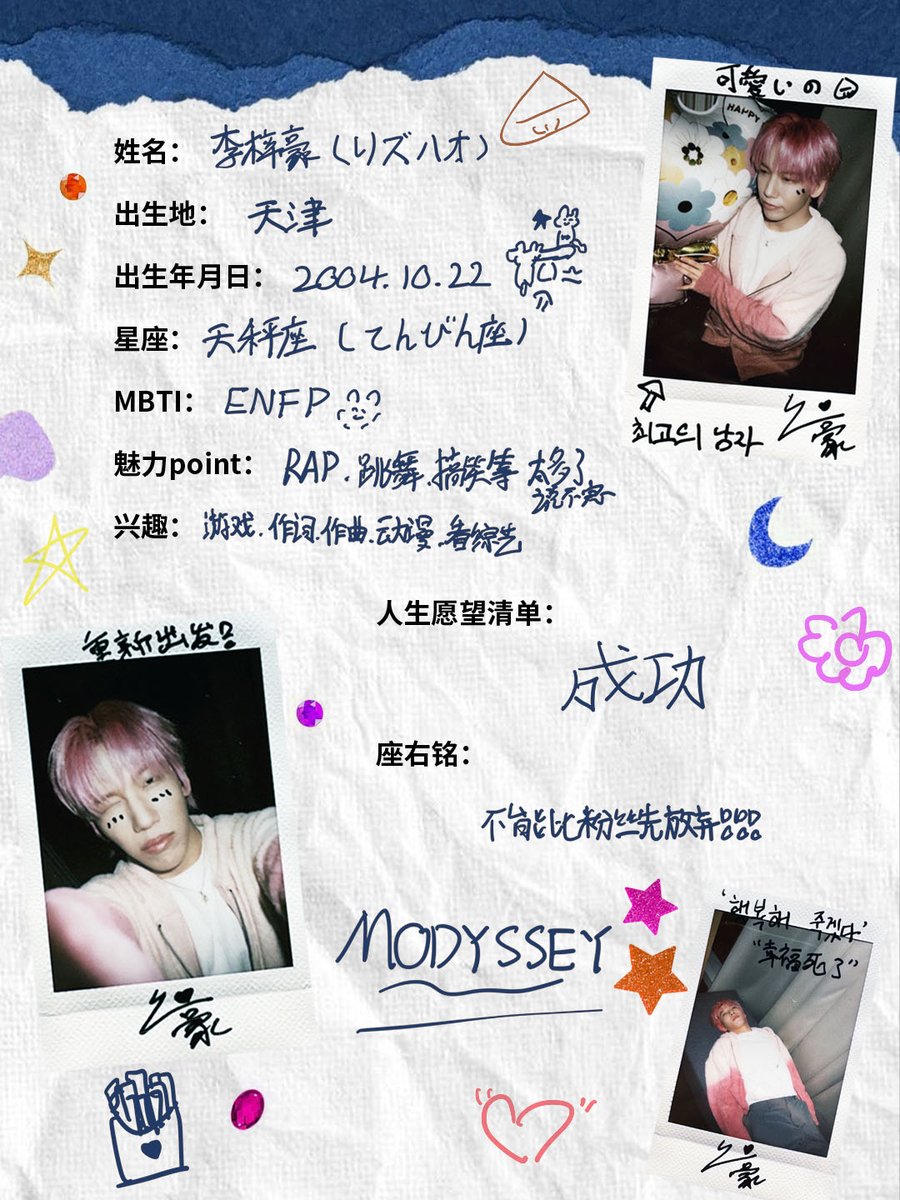 可愛いの
HAPPY
姓名：李梓豪（リズハオ）
出生地：天津
出生年月日：2004.10.22
星座：天秤座（てんびん座）
MBTI：ENFP
최고의 남자
豪
魅力point：RAP.跳舞.搞笑等 太多了
说不完
兴趣：游戏.作词.作曲.动漫.看综艺
人生愿望清单：
成功
重新出发!
座右铭：
不能比粉丝先放弃!!!
'행복해 죽겠다'
"幸福死了"
MODYSSEY
豪
豪